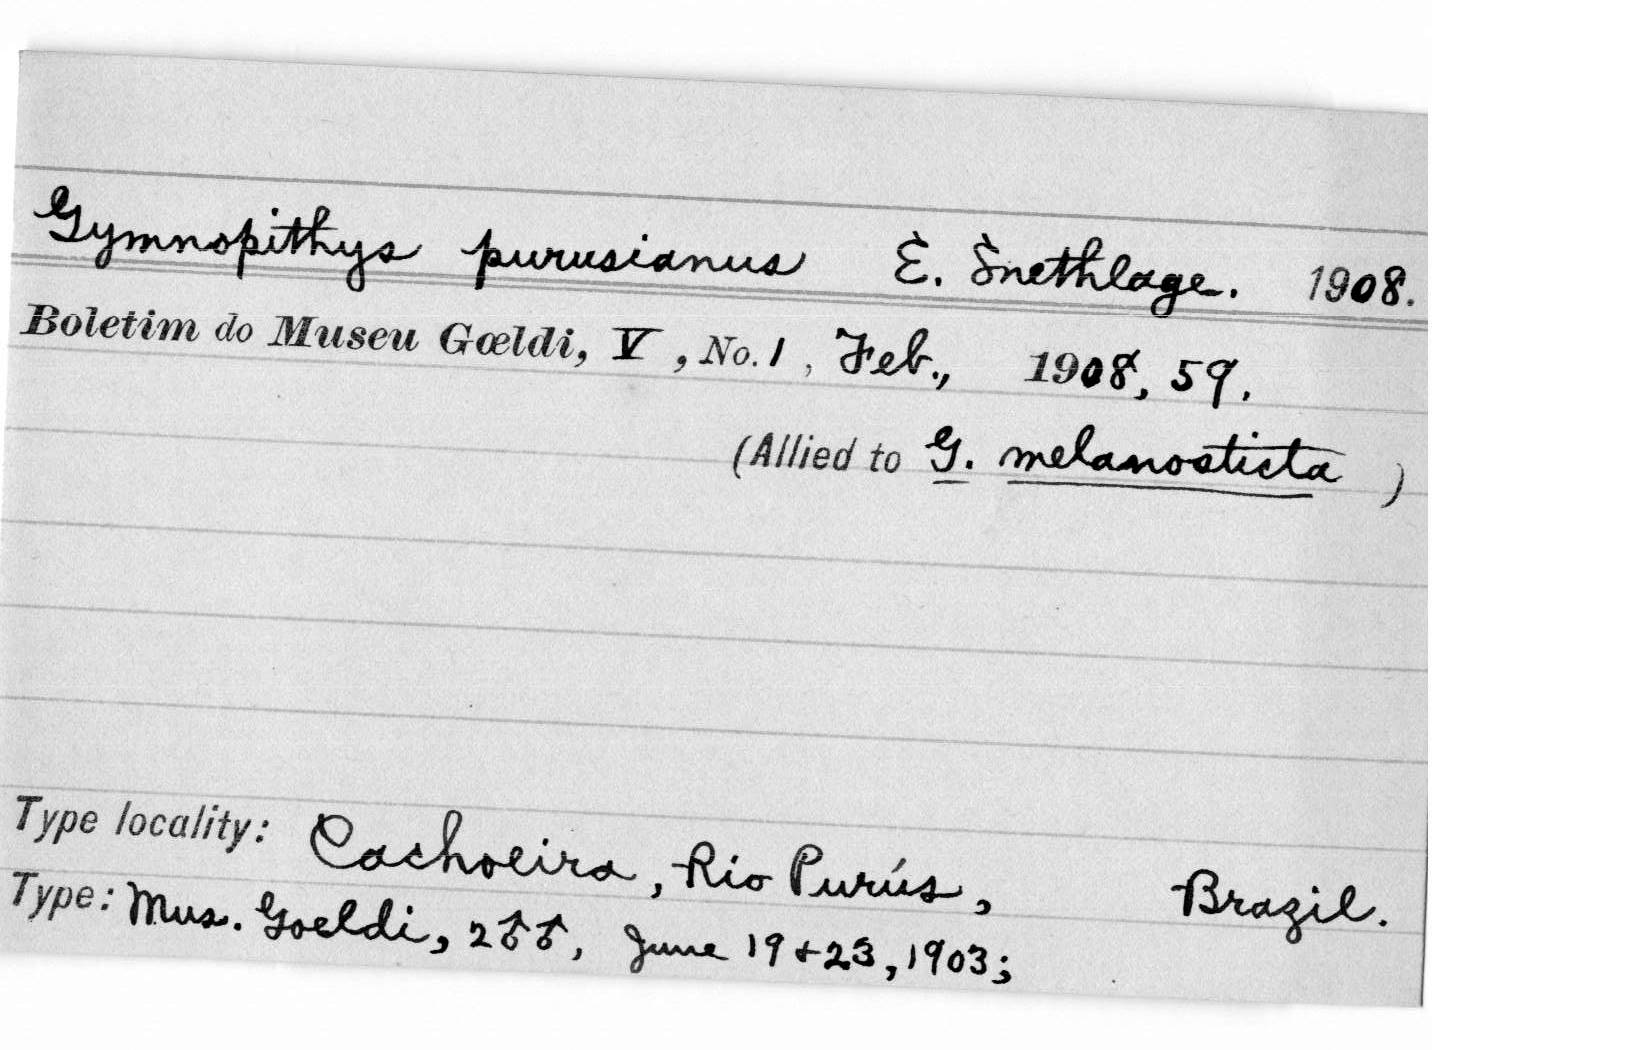 Gymnopithys purusianus E. Snethlage. 1908.
Boletim do Museu Gœldi, V, No. 1, Feb., 1908, 59.
(Allied to G. melanosticta )
Type locality: Cachoeira, Rio Purús, Brazil.
Type: Mus. Goeldi, 2 ♂♂, June 19 + 23, 1903;